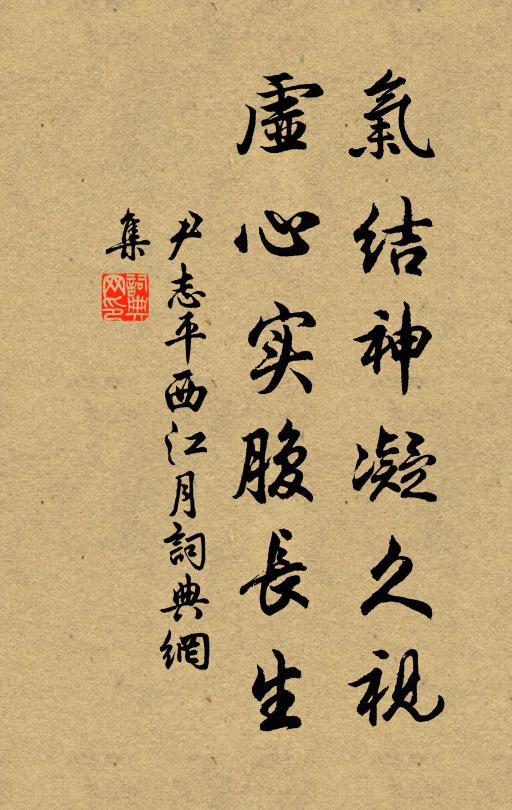 氣结神凝久視
虛心实腹長生
尹志平西江月詞典網
集
詞典
网印